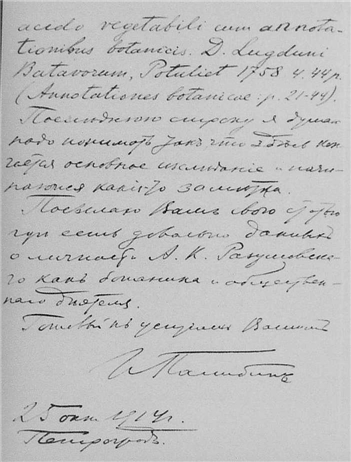 acedo vegetabili cum annota-
tionibus botanicis. D. Lugduni
Batavorum, Potuliet 1758 4. 44 p.
(Annotationes botanicae: p. 21-44).
Последнюю строку я думаю
надо понимать такъ что здѣсь кон-
чается основное изслѣдованіе и начи-
наются какія то замѣтки.
Посылаю Вамъ свою
есть довольно данныхъ
о личности А. К. Разумовска-
го какъ ботаника и обществен-
наго дѣятеля.
Готовый къ услугамъ Вашимъ
И Палибинъ
25 окт. 1914 г.
Петроградъ.